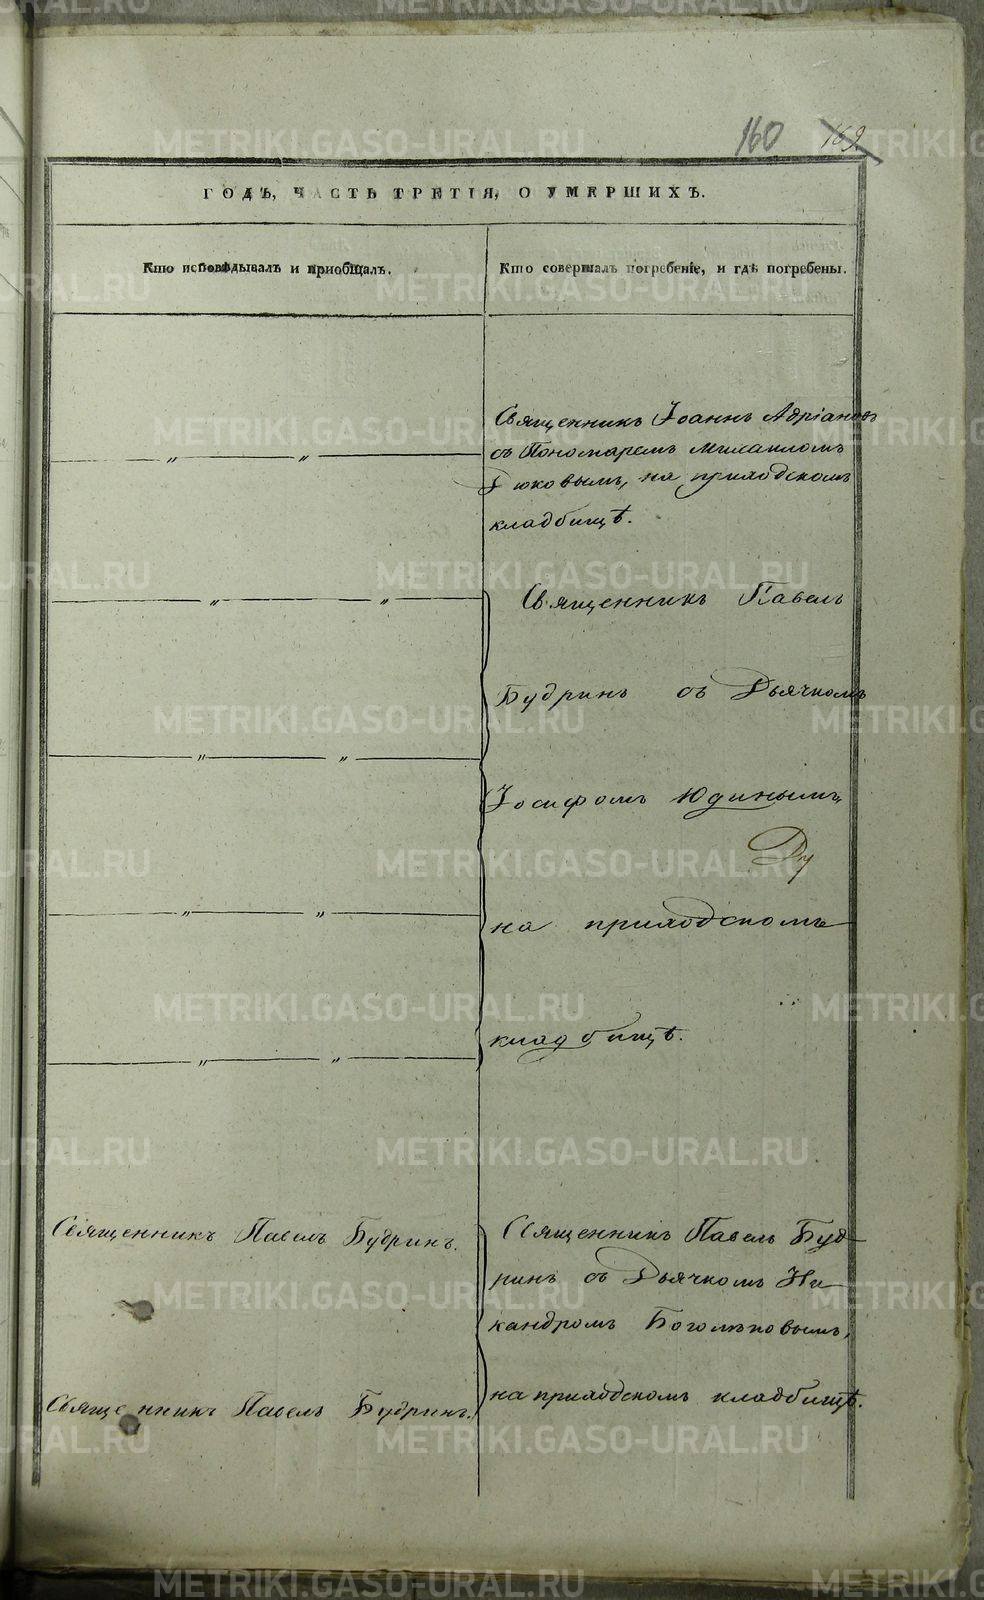 160 169
ГОДЪ, ЧАСТЬ ТРЕТІЯ, О УМЕРШИХЪ.
Кто исповѣдывалъ и приобщалъ.
Кто совершалъ погребеніе, и гдѣ погребены.
Священникъ Іоаннъ Адріановъ
съ Пономаремъ Михаиломъ
Гюковымъ, на приходскомъ
кладбищѣ.
Священникъ Павелъ
Будринъ съ Дьячкомъ
Іосифомъ Юдинымъ
на приходскомъ
кладбищѣ.
Священникъ Павелъ Будринъ.
Священникъ Павелъ Буд
ринъ съ Дьячкомъ Ни
кандромъ Боголѣповымъ,
на приходскомъ кладбищѣ.
Священникъ Павелъ Будринъ.
METRIKI.GASO-URAL.RU